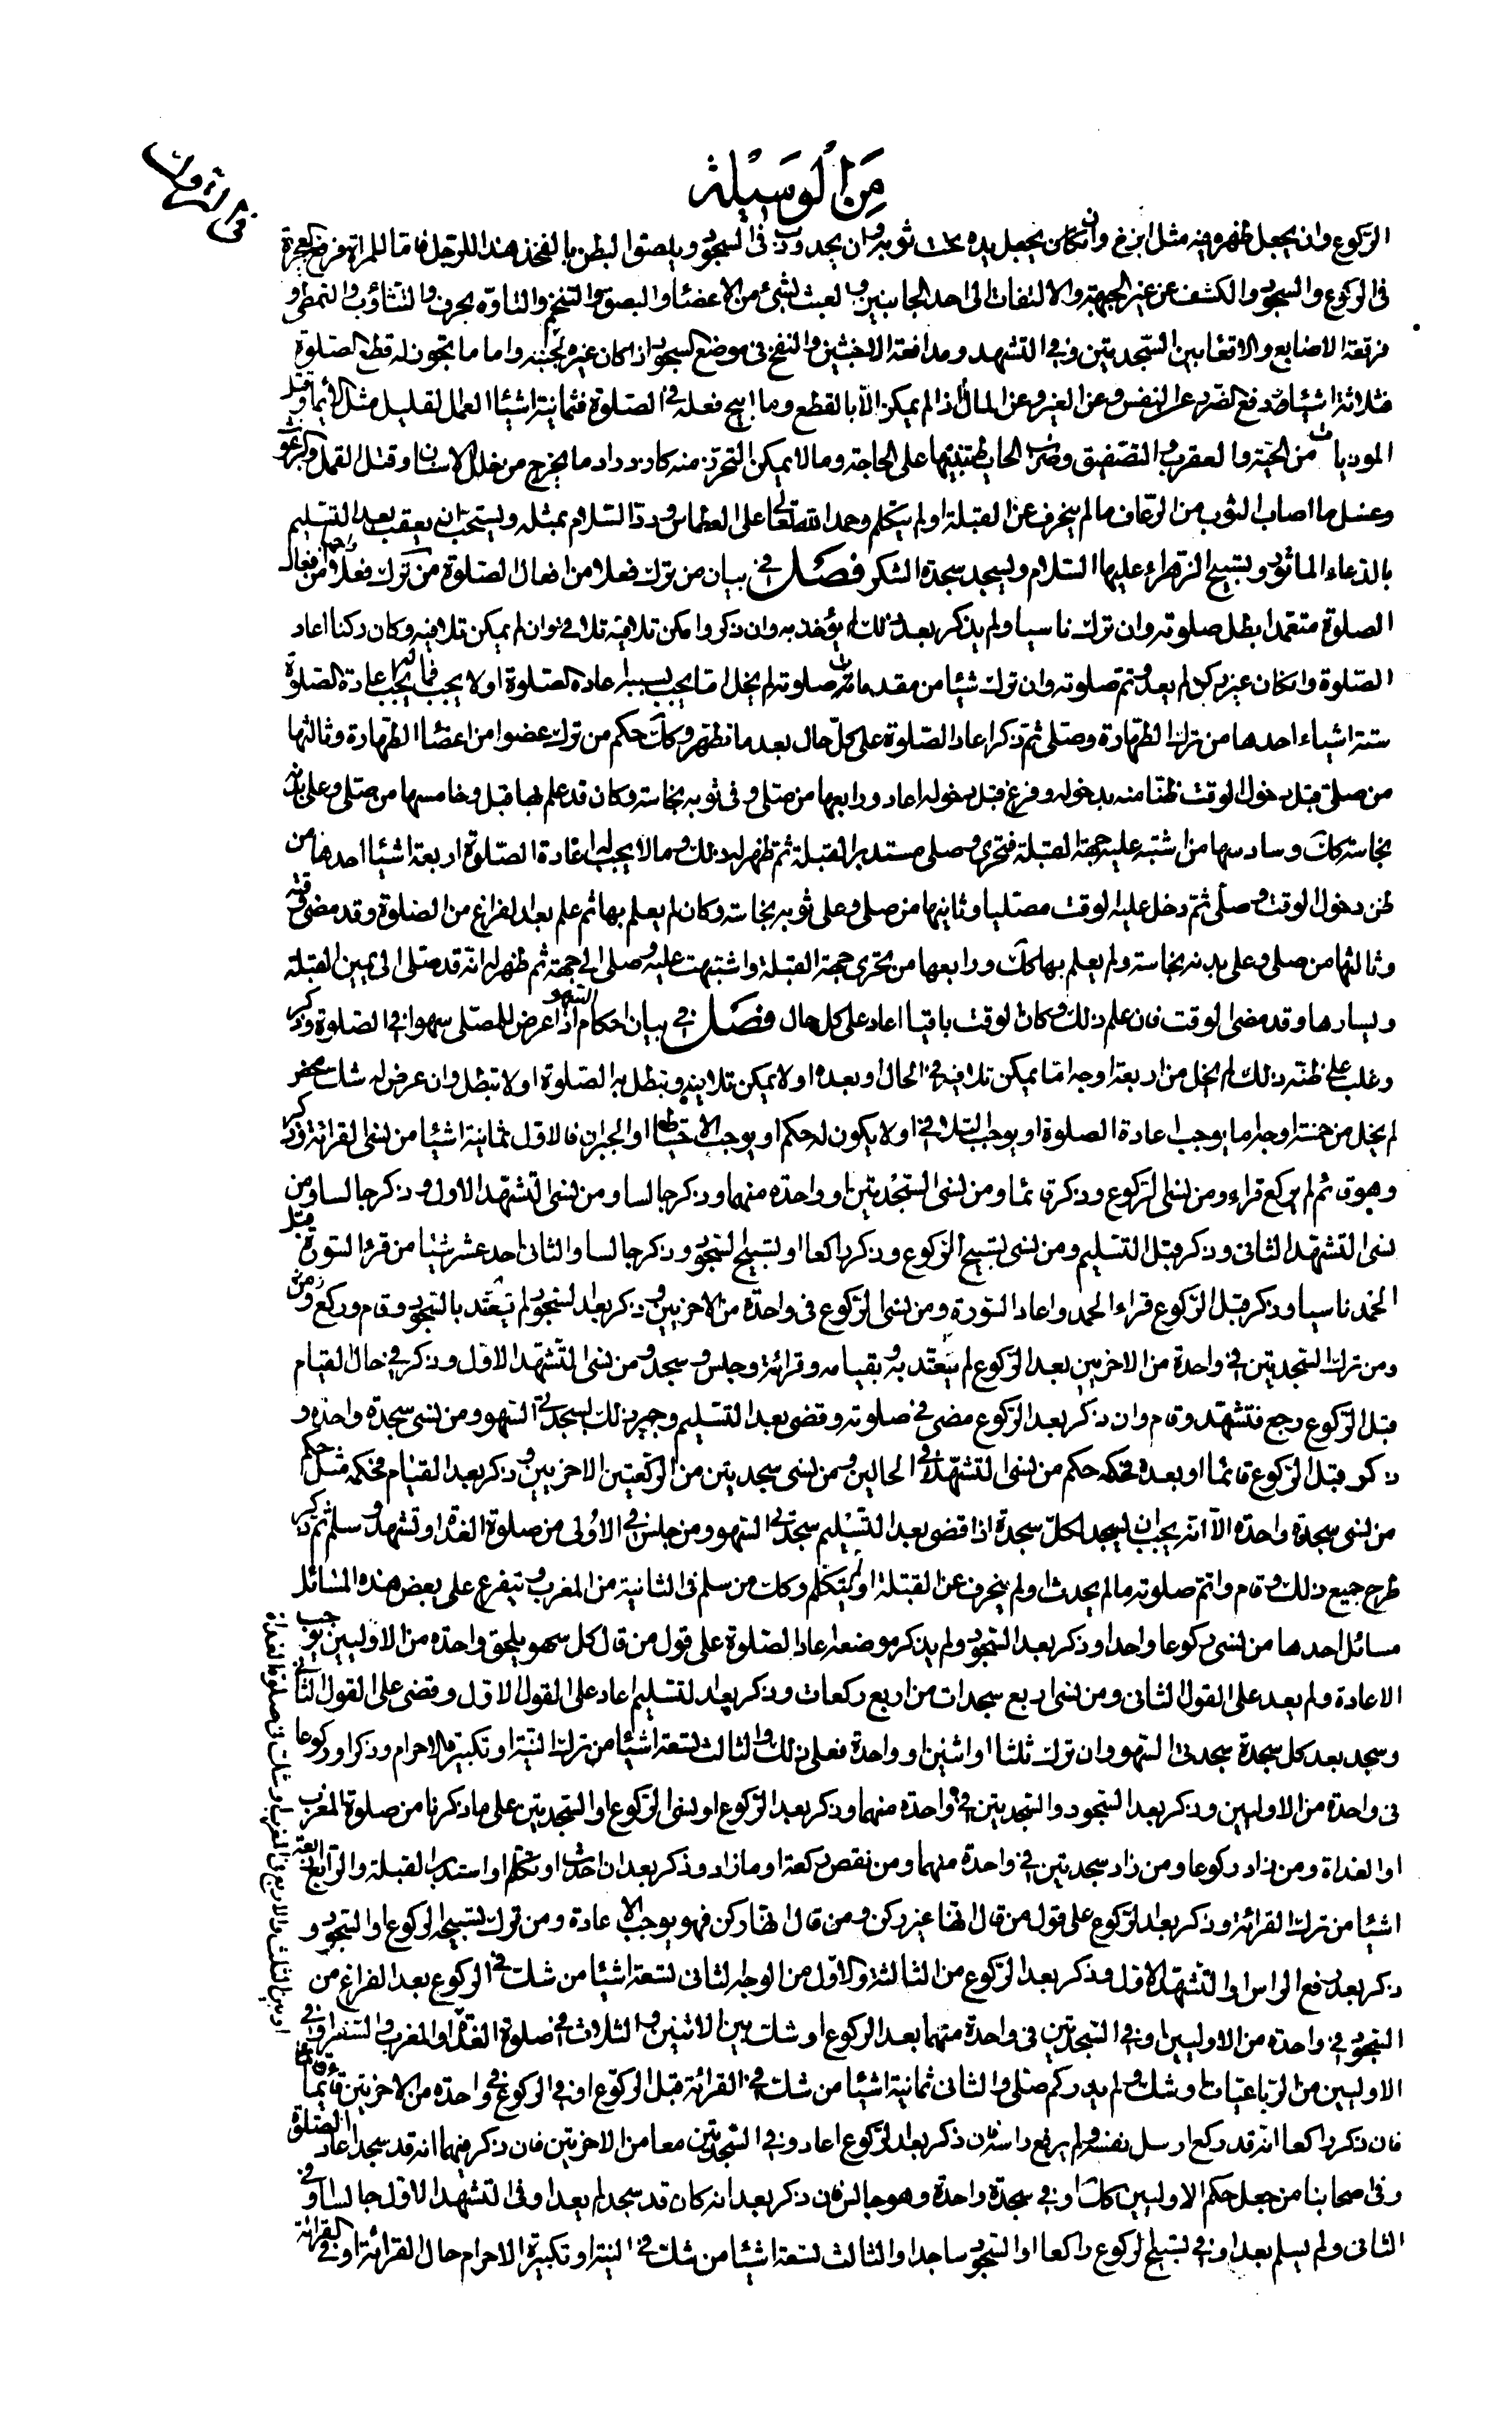 مِنَ الْوَسِيْلَة
في المتروكات
الركوع وان يجعل ظهره فيه مثل ابزخ وان كان يجعل يده تحت ثوبه وان يحدودب في السجود ويلصق البطن بالفخذ هذا للرجل فاما المراة
في الركوع والسجود والكشف عن غير الجبهة والالتفات الى احد الجانبين و لعبث لشئ من الاعضاء والبصق والتنخم والتاوه بحرف والتثاؤب والتمطى و
فرقعة الاصابع والاقعا بين السجدتين وفي التشهد ومدافعة الاخبثين والنفخ في موضع السجود اذا كان غيره بجنبه واما ما يجوز له قطع الصلوة
فثلاثة اشيئا دفع الضرر عن النفس وعن الغير وعن المال اذا لم يمكن الا بالقطع وما ابيح فعله في الصلوة فثمانية اشيئا العمل القليل مثل الايماء وقتل
الموذيات من الحية والعقرب و التصفيق وضرب الحايط تنبيها على الحاجة وما لا يمكن التحرز منه كازدراد ما يخرج من خلل الاسنان وقتل القمل والبرغوث
وغسل ما اصاب الثوب من الرعاف ما لم ينحرف عن القبلة او لم يتكلم وحمد الله تعالى على العطاس ورد السلام بمثله ويستحب ان يعقب بعد التسليم
بالدعاء الماثور وتسبيح الزهراء عليها السلام ويسجد سجدة الشكر فصل في بيان من ترك فعلا من افعال الصلوة من ترك فعلا واجبا من افعال
الصلوة متعمدا بطل صلوته وان ترك ناسيا ولم يذكر بعد ذلك لم يؤخذ به وان ذكر وامكن تلافيه تلافى وان لم يمكن تلافيه وكان ركنا اعاد
الصلوة وان كان غير ركن لم يعد وتم صلوته وان ترك شيئا من مقدمات صلوته لم يخل اما يجب بسببه اعادة الصلوة او لا يجب فما يجب له اعادة الصلوة
ستة اشياء احدها من ترك الطهارة وصلى ثم ذكر اعاد الصلوة على كل حال بعد ما تطهر وكك حكم من ترك عضوا من اعضا الطهارة وثالثها
من صلى قبل دخول الوقت ظنا منه بدخوله وفرغ قبل دخوله اعاد ورابعها من صلى وفي ثوبه نجاسة وكان قد علم بها قبل وخامسها من صلى وعلى بدنه
نجاسة كك وسادسها من اشتبه عليه جهة القبلة فتحرى وصلى مستدبر القبلة ثم ظهر له ذلك وما لا يجب له اعادة الصلوة اربعة اشيئا احدها من
ظن دخول الوقت وصلى ثم دخل عليه الوقت مصليا وثانيها من صلى وعلى ثوبه نجاسة وكان لم يعلم بها ثم علم بعد الفراغ من الصلوة وقد مضى وقته
وثالثها من صلى وعلى بدنه نجاسة ولم يعلم بها كك ورابعها من تحرى جهة القبلة واشتبهت عليه وصلى الى جهة ثم ظهر له انه قد صلى الى يمين القبلة
ويسارها وقد مضى الوقت فان علم ذلك وكان الوقت باقيا اعاد على كل حال فصل في بيان احكام السهو اذا عرض للمصلى سهو في الصلوة وذكر
وغلب على ظنه ذلك لم يخل من اربعة اوجه اما يمكن تلافيه في الحال او بعده او لا يمكن تلافيه وتبطل به الصلوة او لا تبطل وان عرض له شك محض
لم يخل من خمسة اوجه اما يوجب اعادة الصلوة او يوجب التلافى او لا يكون له حكم او يوجب الاحتياط او الجبران فالاول ثمانية اشيئا من نسى القرائة وذكر
وهو قائم لم يركع قراء ومن نسى الركوع وذكر قائما ومن نسى السجدتين او واحدة منهما وذكر جالسا ومن نسى التشهد الاول وذكر جالسا ومن
نسى التشهد الثانى وذكر قبل التسليم ومن نسى تسبيح الركوع وذكر راكعا او تسبيح السجود وذكر جالسا والثانى احد عشر شيئا من قرء السورة قبل
الحمد ناسيا وذكر قبل الركوع قراء الحمد واعاد السورة ومن نسى الركوع في واحدة من الاخريين و ذكر بعد السجود لم يعتد بالسجود وقام وركع
ومن ترك السجدتين في واحدة من الاخريين بعد الركوع لم يعتد به و بقيامه وقرائة وجلس وسجد ومن نسى التشهد الاول وذكر في حال القيام
قبل الركوع رجع فتشهد وقام وان ذكر بعد الركوع مضى في صلوته وقضى بعد التسليم وجبر ذلك بسجدتى السهو ومن نسى سجدة واحدة و
ذكر قبل الركوع قائما او بعده فحكمه حكم من نسى التشهد في الحالين ومن نسى سجدتين من الركعتين الاخريين و ذكر بعد القيام فحكمه مثل حكم
من نسى سجدة واحدة الا انه يجب ان يسجد لكل سجدة اذا قضى بعد التسليم سجدتى السهو ومن جلس في الاولى من صلوة الغداة وتشهد وسلم ثم ذكر
طرح جميع ذلك وقام واتم صلوته ما لم يحدث او لم ينحرف عن القبلة او لم يتكلم وكك من سلم في الثانية من المغرب و تيفرع على بعض هذه المسائل
مسائل احدها من نسى ركوعا واحدا وذكر بعد السجود ولم يذكر موضعه اعاد الصلوة على قول من قال كل سهو يلحق واحدة من الاوليين يوجب
الاعادة ولم يعد على القول الثانى ومن نسى اربع سجدات من اربع ركعات وذكر بعد التسليم اعاد على القول الاول وقضى على القول الثانى
وسجد بعد كل سجدة سجدتى السهو وان ترك ثلثا او اثنين او واحدة فعل ذلك والثالث تسعة اشيئا من ترك النية او تكبيرة الاحرام وذكر او ركوعا
في واحدة من الاوليين وذكر بعد السجود والسجدتين في واحدة منهما وذكر بعد الركوع او نسى الركوع او السجدتين على ما ذكرنا من صلوة المغرب
او الغداة ومن زاد ركوعا ومن زاد سجدتين في واحدة منهما ومن نقص ركعة او ما زاد وذكر بعد ان احدث او تكلم او استدبر القبلة والرابع اربعة
اشيئا من ترك القرائة وذكر بعد الركوع على قول من قال انها غير ركن ومن قال انها ركن فهو يوجب الاعادة ومن ترك تسبيح الركوع او السجود و
ذكر بعد رفع الراس او التشهد الاول وذكر بعد الركوع من الثالثة والاول من الوجه الثانى تسعة اشيئا من شك في الركوع بعد الفراغ من
السجود في واحدة من الاوليين او في السجدتين في واحدة منهما بعد الركوع او شك بين الاثنين و الثلاث في صلوة الغداة او المغرب و السفر او في
الاوليين من الرباعيات او شك ولم يدر كم صلى و الثانى ثمانية اشيئا من شك في القرائة قبل الركوع او في الركوع في واحدة من الاخريين قائما
فان ذكر راكعا انه قد ركع ارسل نفسه ولم يرفع راسه فان ذكر بعد الركوع اعاد وفي السجدتين معا من الاخريين فان ذكر فيهما انه قد سجد اعاد الصلوة
وفي اصحابنا من جعل حكم الاوليين كك او في سجدة واحدة وهو جالس فان ذكر بعد انه كان قد سجد لم يعد او في التشهد الاول جالسا وفي
الثانى ولم يسلم بعد او في تسبيح الركوع راكعا او السجود ساجدا والثالث تسعة اشيئا من شك في النية او تكبيرة الاحرام حال القرائة او في القرائة
او بين الثلث والاربع في المغرب او شك في صلوة الغداة